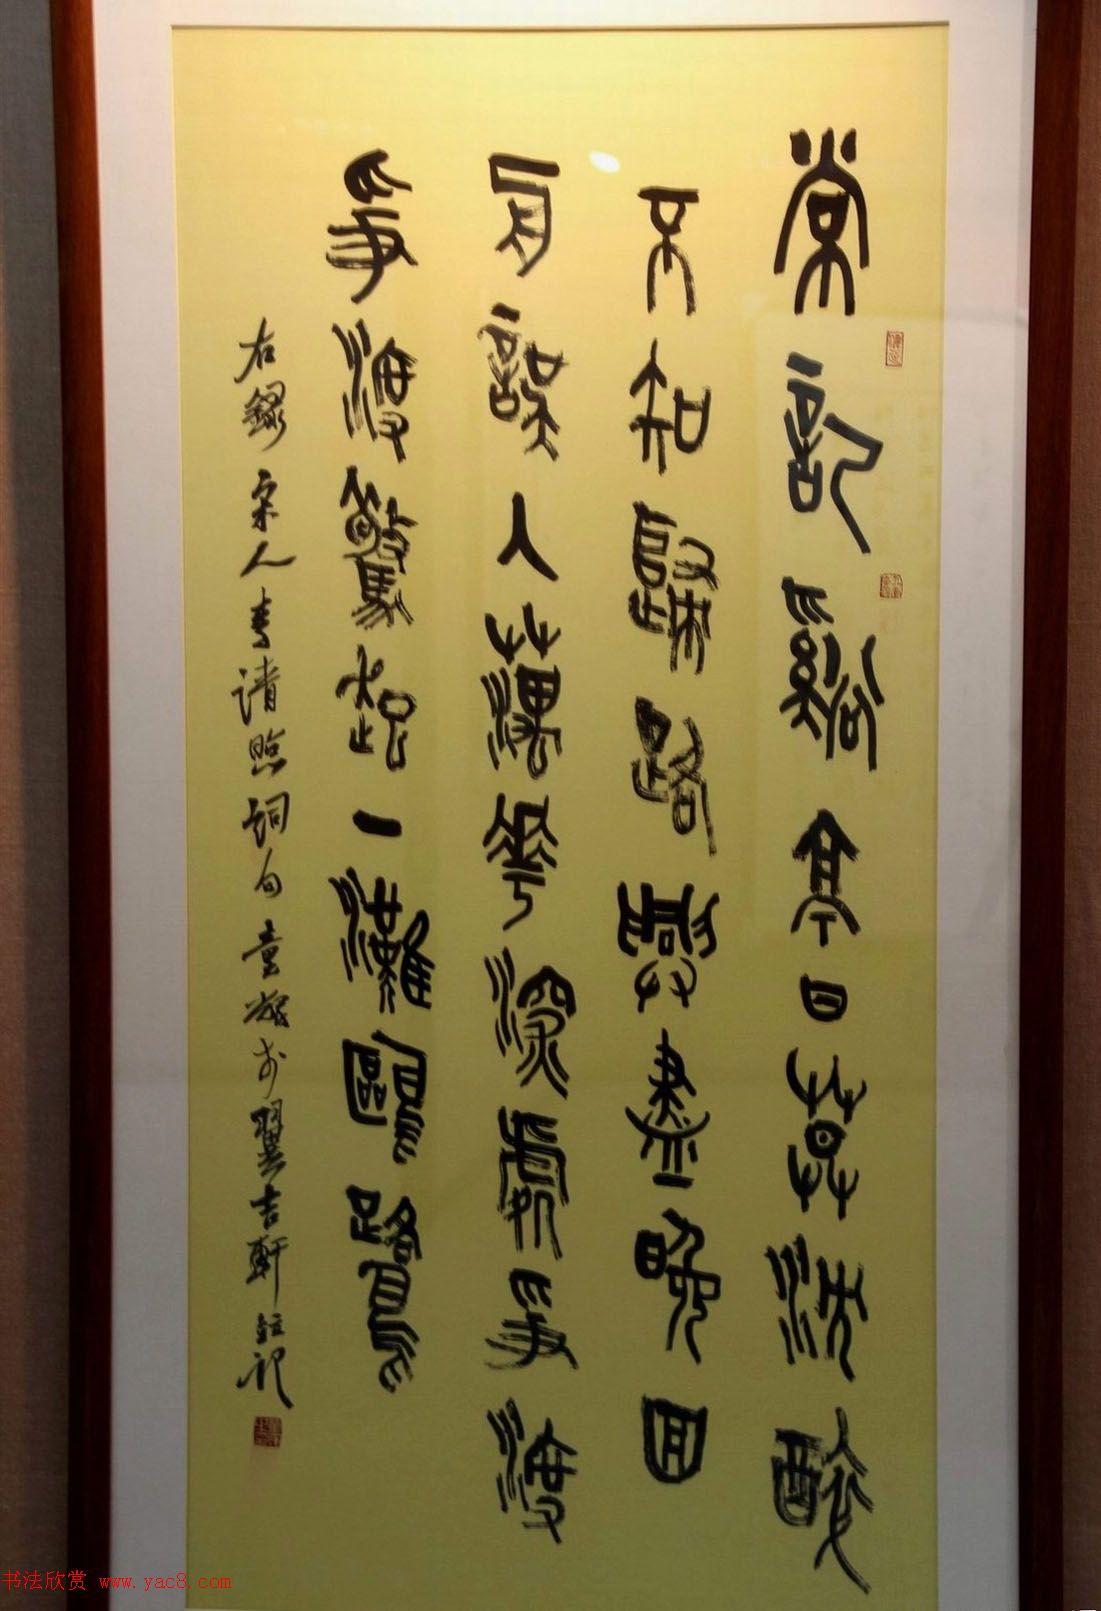 常記谿亭日莫沈醉
不知歸路興盡晚回
舟誤人蕅華深處爭渡
爭渡驚起一灘鷗鷺
右錄宋人李清照詞句童於翼吉軒記
书法欣赏 www.yac8.com